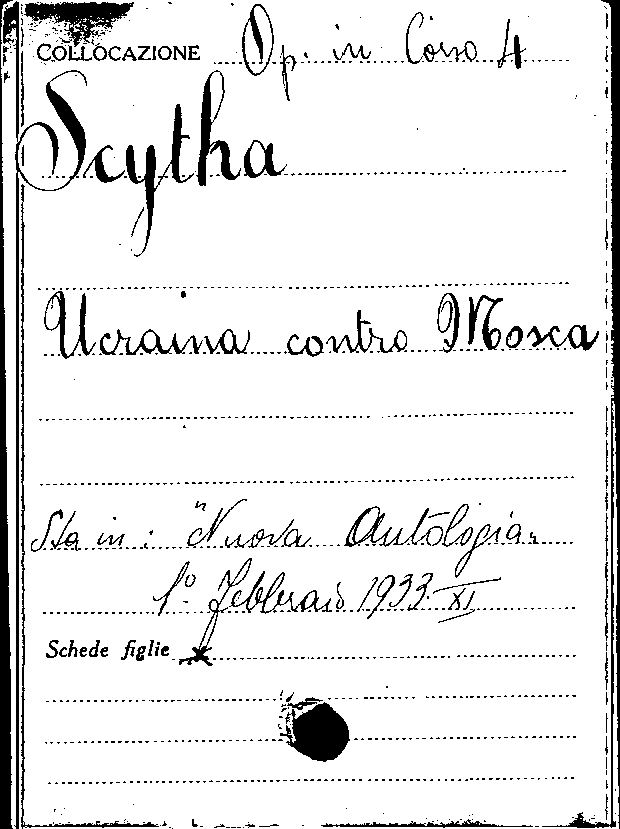 COLLOCAZIONE Op. in Corso 4
Scytha
Ucraina contro Mosca
Sta in: "Nuova Antologia"
1º Febbraio 1933-XI
Schede figlie x